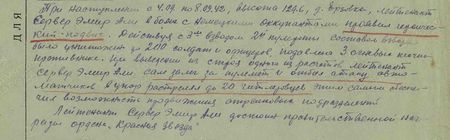 ДЛЯ
При наступлении с 4.09 по 8.09.42, высота 124,6, д. лейтенант
Сервер Эмир Али в боях с немецкими оккупантами проявил героичес-
кий подвиг. Действуя с 3им взводом 2й пульроты составом взвода
было уничтожено до 200 солдат и офицеров, подавлено 3 огневых точки
противника. При выведении из строя одного из расчетов лейтенант
Сервер Эмир Али сам залег за пулемет и отбил атаку авто-
матчиков в упор расстрелял до 20 гитлеровцев этим самым обеспе-
чил возможность продвижения стрелковых подразделений.
Лейтенант Сервер Эмир Али достоин правительственной наг-
рады ордена „Красная Звезда"